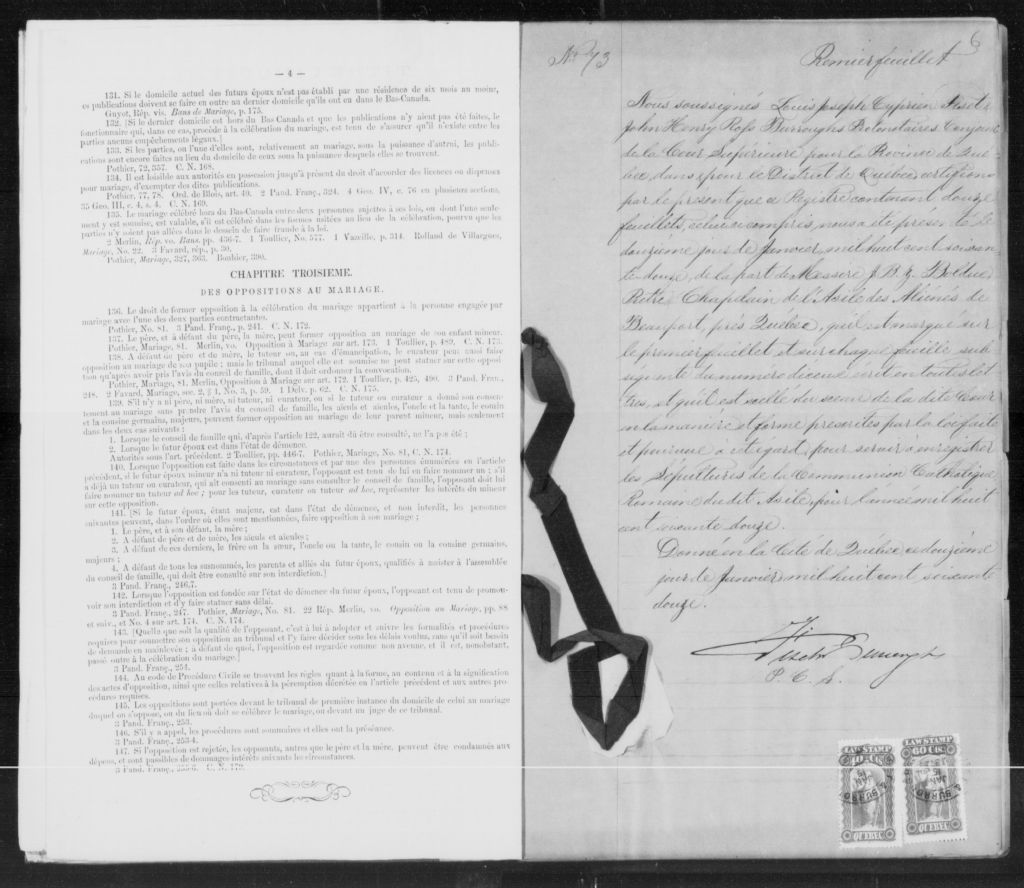 — 4 —
131. Si le domicile actuel des futurs époux n'est pas établi par une résidence de six mois au moins,
ces publications doivent se faire en outre au dernier domicile qu'ils ont eu dans le Bas-Canada.
Guyot, Rép. vis. Bans de Mariage, p. 175.
132. [Si le dernier domicile est hors du Bas-Canada et que les publications n'y aient pas été faites, le
fonctionnaire qui, dans ce cas, procède à la célébration du mariage, est tenu de s'assurer qu'il n'existe entre les
parties aucuns empêchements légaux.]
133. Si les parties, ou l'une d'elles sont, relativement au mariage, sous la puissance d'autrui, les publi-
cations sont encore faites au lieu du domicile de ceux sous la puissance desquels elles se trouvent.
Pothier, 72, 357. C. N. 168.
134. Il est loisible aux autorités en possession jusqu'à présent du droit d'accorder des licences ou dispenses
pour mariage, d'exempter des dites publications.
Pothier, 77, 78. Ord. de Blois, art. 40. 2 Pand. Franç., 324. 4 Geo. IV, c. 76 en plusieurs sections,
35 Geo. III, c. 4, s. 4. C. N. 169.
135. Le mariage célébré hors du Bas-Canada entre deux personnes sujettes à ses lois, ou dont l'une seule-
ment y est soumise, est valable, s'il est célébré dans les formes usitées au lieu de la célébration, pourvu que les
parties n'y soient pas allées dans le dessein de faire fraude à la loi.
2 Merlin, Rép. vo. Bans, pp. 436-7. 1 Toullier, No. 577. 1 Vazeille, p. 314. Rolland de Villargues,
Mariage, No. 22. 3 Favard, rép., p. 30.
Pothier, Mariage, 327, 363. Bouhier, 390.
CHAPITRE TROISIEME.
DES OPPOSITIONS AU MARIAGE.
136. Le droit de former opposition à la célébration du mariage appartient à la personne engagée par
mariage avec l'une des deux parties contractantes.
Pothier, No. 81. 3 Pand. Franç., p. 241. C. N. 172.
137. Le père, et à défaut du père, la mère, peut former opposition au mariage de son enfant mineur.
Pothier, Mariage, 81. Merlin, vo. Opposition à Mariage sur art. 173. 1 Toullier, p. 489. C. N. 173.
138. A défaut de père et de mère, le tuteur ou, au cas d'émancipation, le curateur peut aussi faire
opposition au mariage de son pupille; mais le tribunal auquel elle est soumise ne peut statuer sur cette opposi-
tion qu'après avoir pris l'avis du conseil de famille, dont il doit ordonner la convocation.
Pothier, Mariage, 81. Merlin, Opposition à Mariage sur art. 172. 1 Toullier, p. 425, 490. 3 Pand. Fran.,
248. 2 Favard, Mariage, sec. 2, § 1, No. 3, p. 59. 1 Delv. p. 62. C. N. 175.
139. S'il n'y a ni père, ni mère, ni tuteur, ni curateur, ou si le tuteur ou curateur a donné son consen-
tement au mariage sans prendre l'avis du conseil de famille, les aïeuls et aïeules, l'oncle et la tante, le cousin
et la cousine germains, majeurs, peuvent former opposition au mariage de leur parent mineur, mais seulement
dans les deux cas suivants :
1. Lorsque le conseil de famille qui, d'après l'article 122, aurait dû être consulté, ne l'a pas été ;
2. Lorsque le futur époux est dans l'état de démence.
Autorités sous l'art. précédent. 2 Toullier, pp. 446-7. Pothier, Mariage, No. 81, C. N. 174.
140. Lorsque l'opposition est faite dans les circonstances et par une des personnes énumérées en l'article
précédent, si le futur époux mineur n'a ni tuteur ni curateur, l'opposant est tenu de lui en faire nommer un ; s'il
a déjà un tuteur ou curateur, qui ait consenti au mariage sans consulter le conseil de famille, l'opposant doit lui
faire nommer un tuteur ad hoc ; pour les tuteur, curateur ou tuteur ad hoc, représenter les intérêts du mineur
sur cette opposition.
141. [Si le futur époux, étant majeur, est dans l'état de démence, et non interdit, les personnes
suivantes peuvent, dans l'ordre où elles sont mentionnées, faire opposition à son mariage ;
1. Le père, et à son défaut, la mère ;
2. A défaut de père et de mère, les aïeuls et aïeules ;
3. A défaut de ces derniers, le frère ou la sœur, l'oncle ou la tante, le cousin ou la cousine germains,
majeurs ;
4. A défaut de tous les susnommés, les parents et alliés du futur époux, qualifiés à assister à l'assemblée
du conseil de famille, qui doit être consulté sur son interdiction.]
3 Pand. Franç., 246,7.
142. Lorsque l'opposition est fondée sur l'état de démence du futur époux, l'opposant est tenu de promou-
voir son interdiction et d'y faire statuer sans délai.
3 Pand. Franç., 247. Pothier, Mariage, No. 81. 22 Rép. Merlin, vo. Opposition au Mariage, pp. 88
et suiv., et No. 4 sur art. 174. C. N. 174.
143. [Quelle que soit la qualité de l'opposant, c'est à lui à adopter et suivre les formalités et procédures
requises pour soumettre son opposition au tribunal et l'y faire décider sous les délais voulus, sans qu'il soit besoin
de demande en mainlevée ; à défaut de quoi, l'opposition est regardée comme non avenue, et il est, nonobstant,
passé outre à la célébration du mariage.]
3 Pand. Franç., 251.
144. Au code de Procédure Civile se trouvent les règles quant à la forme, au contenu et à la signification
des actes d'opposition, ainsi que celles relatives à la péremption décrétée en l'article précédent et aux autres pro-
cédures requises.
145. Les oppositions sont portées devant le tribunal de première instance du domicile de celui au mariage
duquel on s'oppose, ou du lieu où doit se célébrer le mariage, ou devant un juge de ce tribunal.
3 Pand. Franç., 253.
146. S'il y a appel, les procédures sont sommaires et elles ont la préséance.
3 Pand. Franç., 253-4.
147. Si l'opposition est rejetée, les opposants, autres que le père et la mère, peuvent être condamnés aux
dépens, et sont passibles de dommages intérêts suivant les circonstances.
3 Pand. Franç., 255-6. C. N. 179.
No 73
6
Premier feuillet
Nous soussignés Louis Joseph Cyprien Fiset &
John Henry Ross Burroughs Protonotaires Conjoint
de la Cour Supérieure pour la Province de Qué-
bec, dans & pour le District de Québec, certifions
par le présent que ce Registre contenant douze
feuillets, celui-ci compris, nous a été présenté le
douzième jour de Janvier, mil huit cent soixan
te-douze, de la part de Messire J. B. Z. Bolduc
Prêtre, Chapelain de l'Asile des Aliénés de
Beauport, près Québec, qu'il est marqué sur
le premier feuillet et sur chaque feuille sub-
séquente du numéro d'icelui écrit en toutes let-
tres, et qu'il est scellé du sceau de la dite Cour
en la manière et forme prescrites par la loi faite
et pourvue à cet égard, pour servir à enregistrer
les Sépultures de la Communion Catholique
Romaine du dit Asile, pour l'année mil huit
cent soixante douze.
Donné en la Cité de Québec ce douzième
jour de Janvier mil huit cent soixante
douze.
Fiset & Burroughs
P. C. S.
LAW STAMP
10 CTS.
QUEBEC
LAW STAMP
60 CTS.
QUEBEC